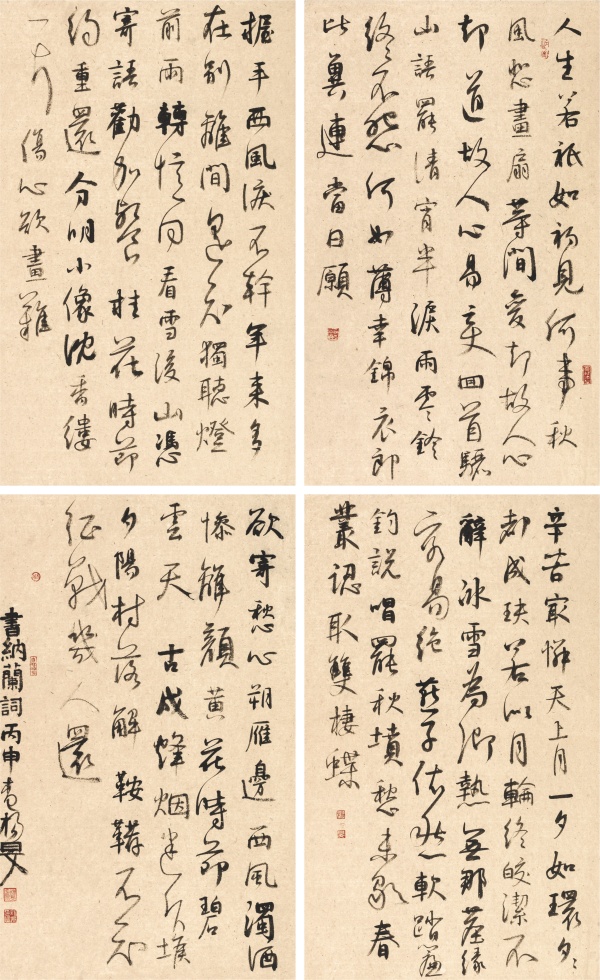 人生若祇如初見何事秋
風悲畫扇等間變却故人心
却道故人心易变回首驪
山語罷清宵半淚雨零鈴
終不怨何如薄幸錦衣郎
比翼連當日願
握手西風淚不幹年来多
在別離間遥知獨聽燈
前雨轉憶同看雪後山憑
寄語勸加餐桂花時節
約重還分明小像沈香縷
一片傷心欲畫難
辛苦最憐天上月一夕如環夕夕
都成玦若似月輪終皎潔不
辭冰雪為卿熱無那塵緣
容易絕燕子依然軟踏簾
鈎說唱罷秋墳愁未歇春
叢認取雙棲蝶
欲寄愁心朔雁邊西風濁酒
慘離顏黃花時節碧
雲天古戍烽烟迷斥堠
夕陽村落解鞍韉不知
征戰幾人還
書納蘭詞丙申春楊